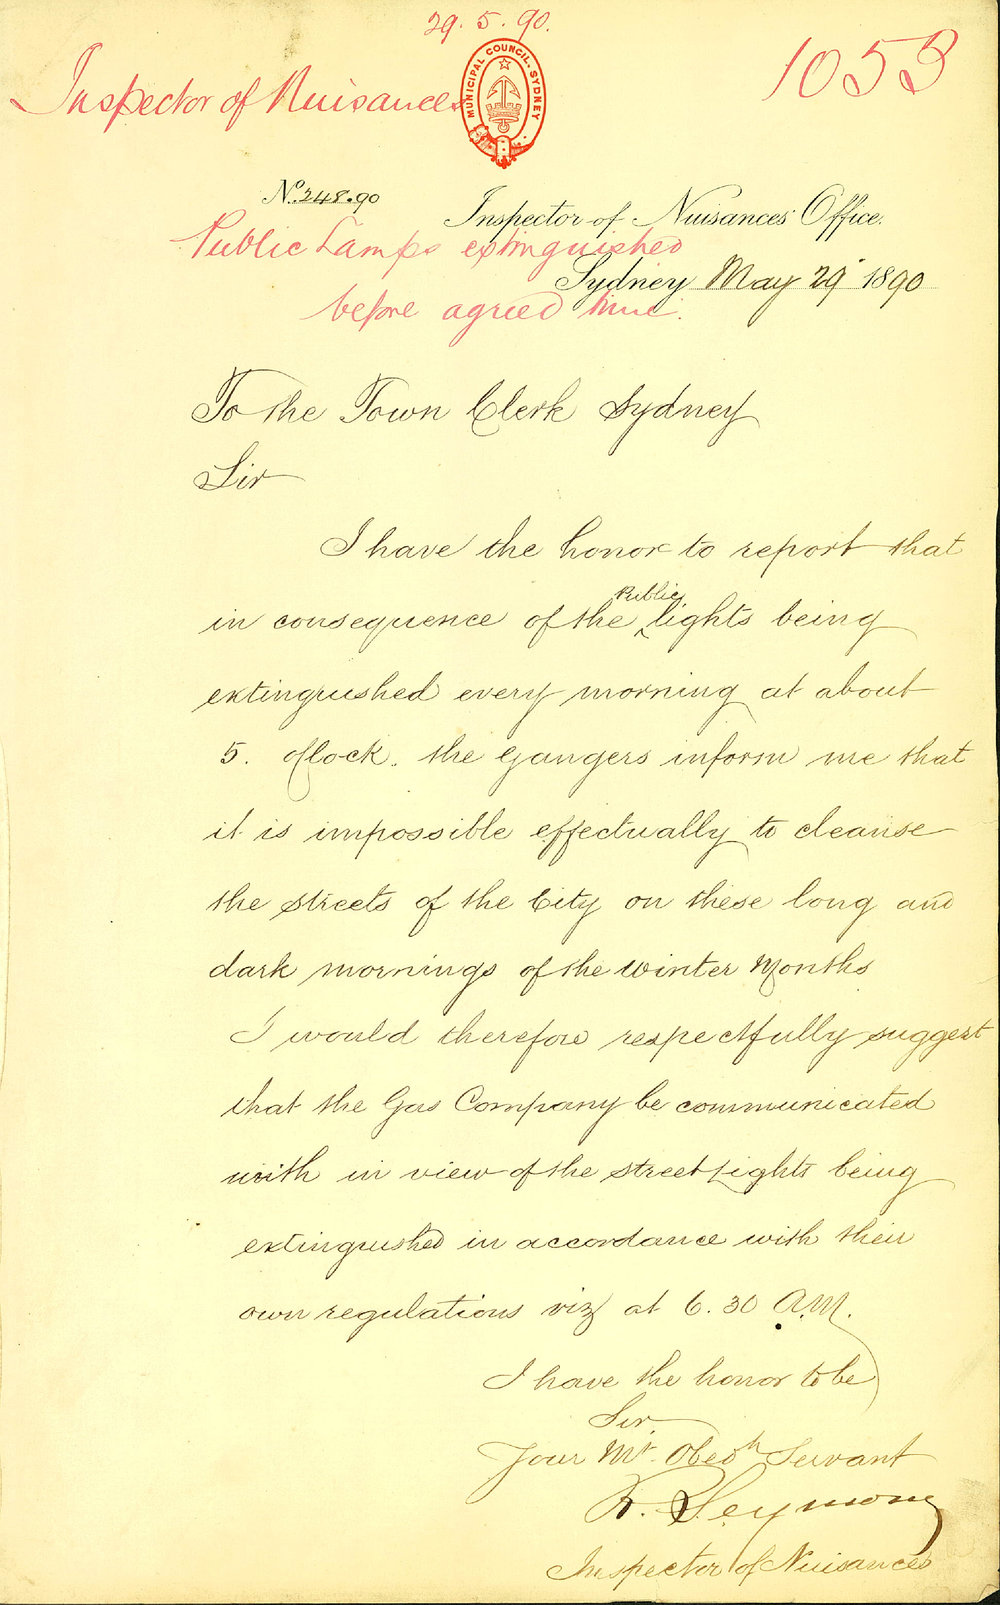 29.5.90.
Inspector of Nuisances
MUNICIPAL COUNCIL. SYDNEY
1053
No. 248.90
Inspector of Nuisances' Office.
Public Lamps extinguished
Sydney May 29 1890
before agreed time.
To the Town Clerk Sydney
Sir
I have the honor to report that
in consequence of the Public lights being
extinguished every morning at about
5. O'Clock. the Gangers inform me that
it is impossible effectually to cleanse
the streets of the City on these long and
dark mornings of the Winter Months
I would therefore respectfully suggest
that the Gas Company be communicated
with in view of the street Lights being
extinguished in accordance with their
own regulations viz at 6.30 A.M.
I have the honor to be
Sir
Your Mt. Obedt Servant
R. Seymour
Inspector of Nuisances